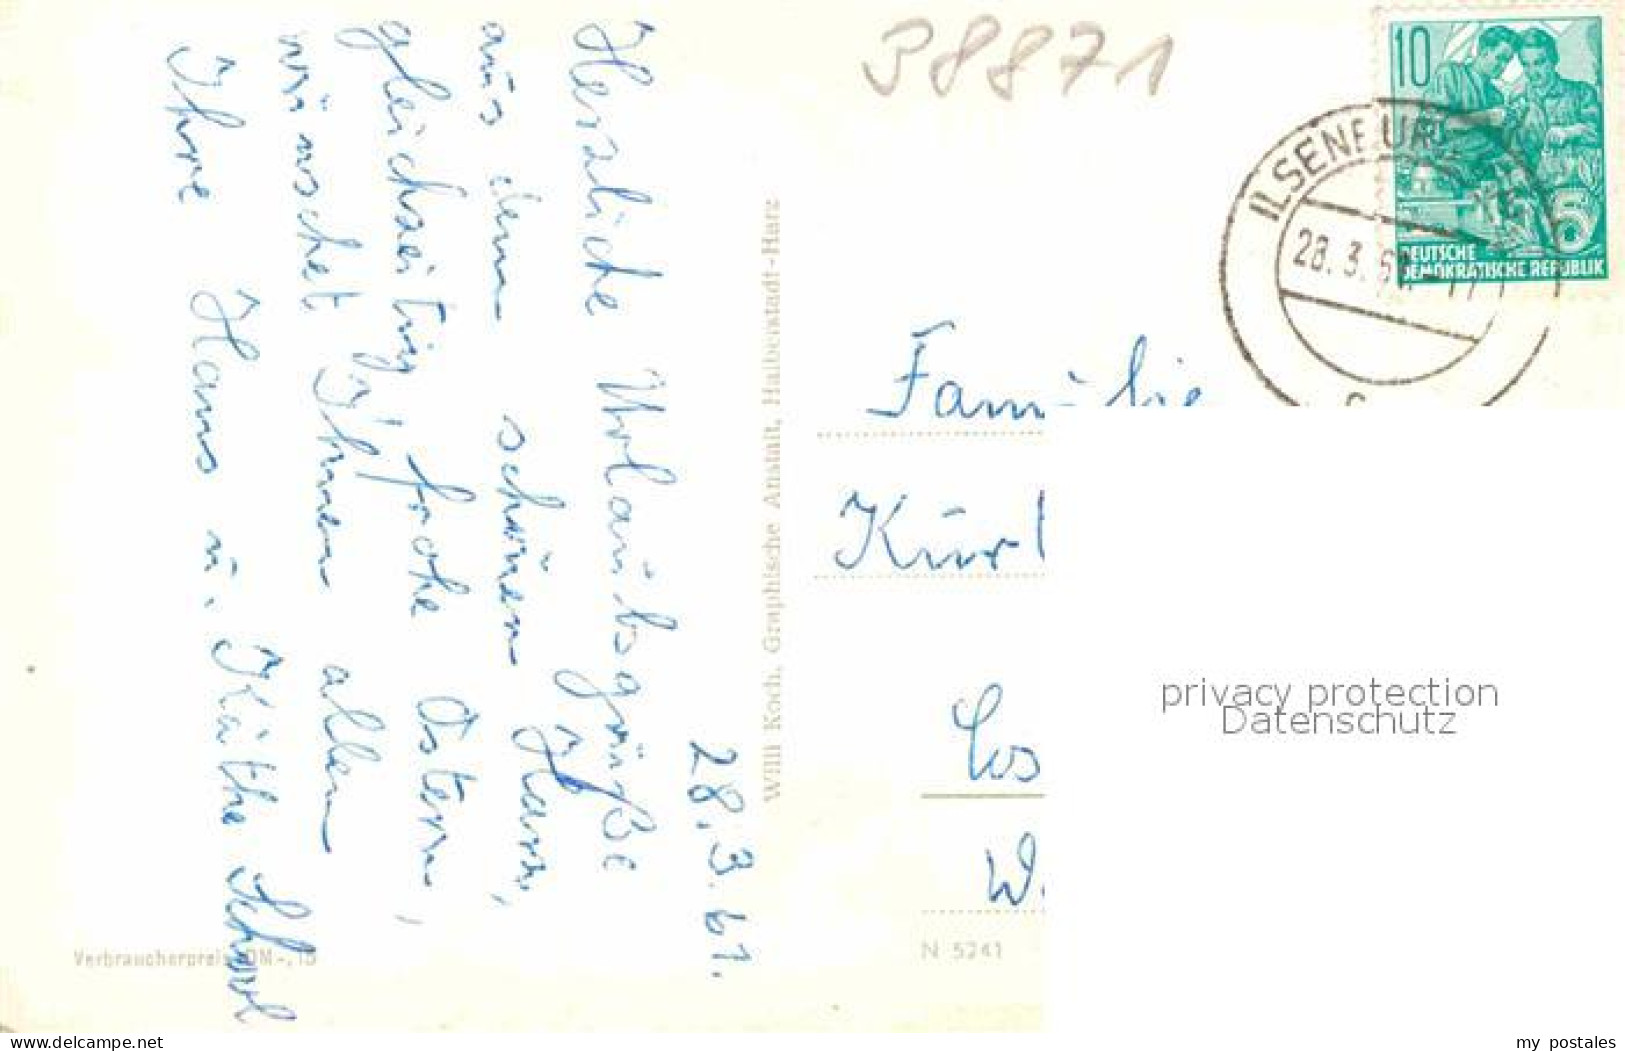 28.3.61.
Herzliche Urlaubsgrüße
aus dem schönen Harz,
gleichzeitig frohe Ostern,
wünschet Ihnen allen
Ihre Hans u. Käthe
Verbraucherpreis DM -,15
Willi Koch, Graphische Anstalt, Halberstadt-Harz
38871
10
5
DEUTSCHE
DEMOKRATISCHE REPUBLIK
ILSENBURG
28. 3. 61
Familie
Kurt
N 5241
privacy protection
Datenschutz
www.delcampe.net
my_postales